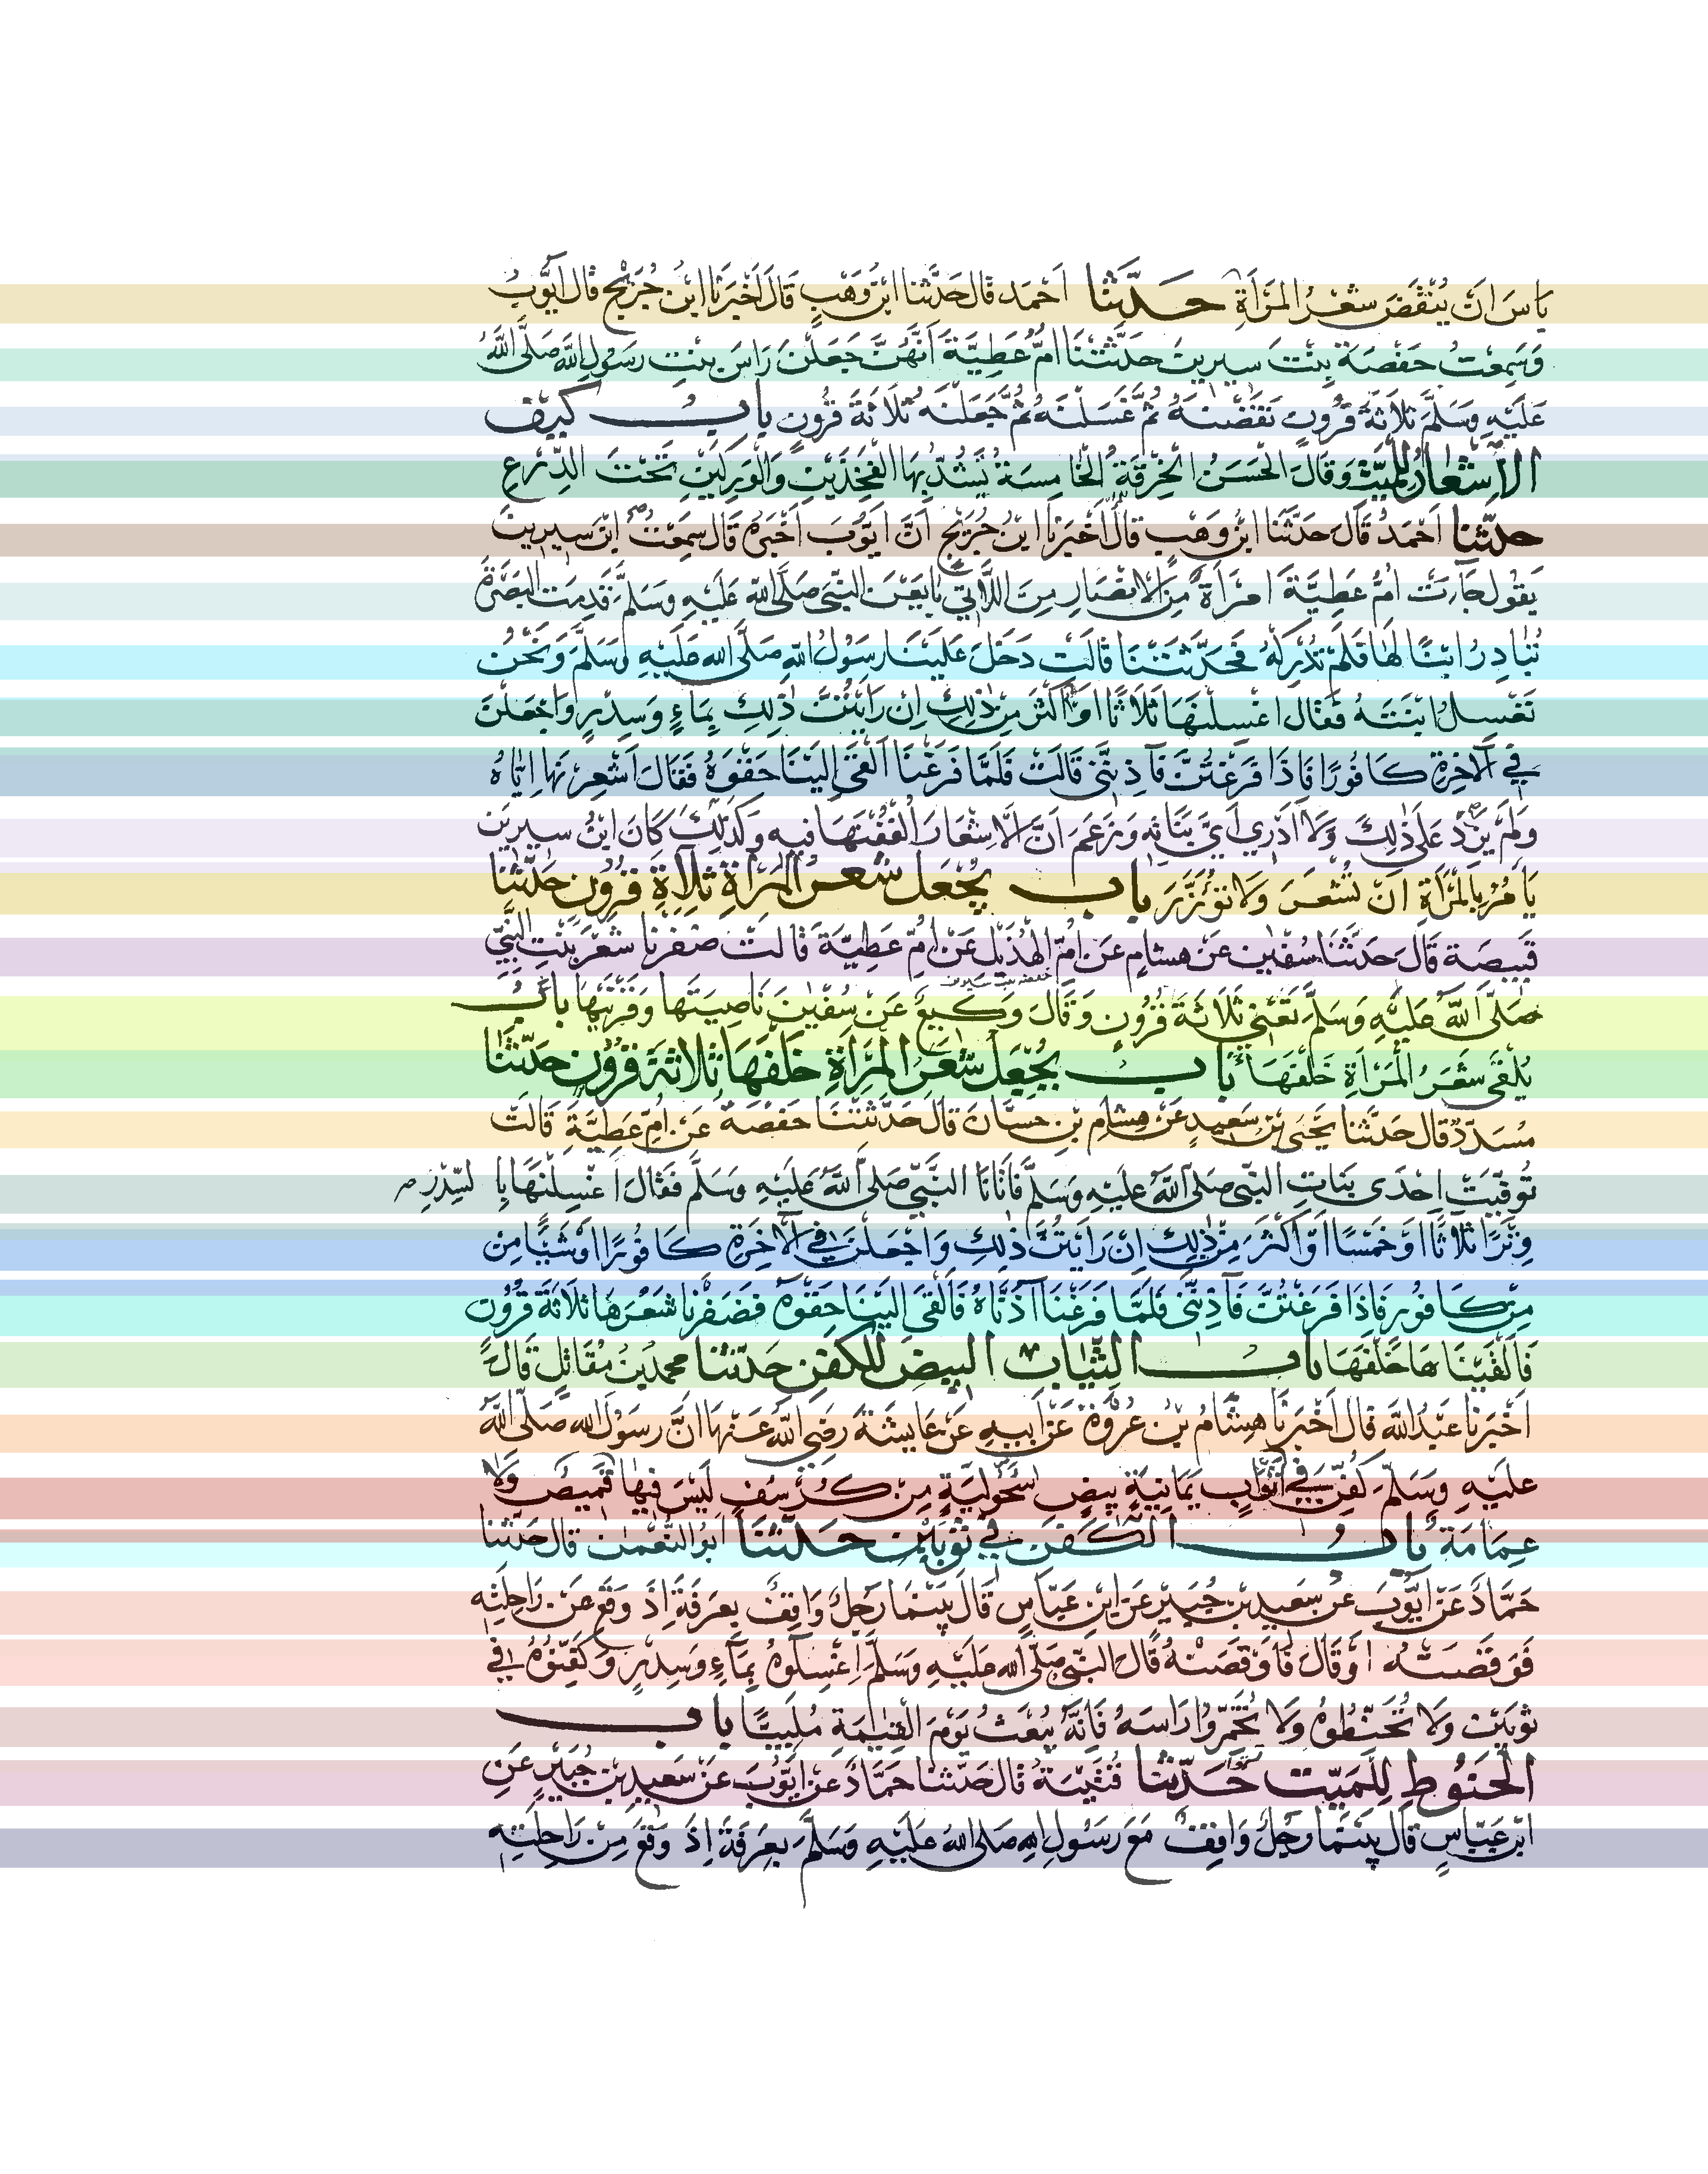 باس ان ينقض شعر المراة حدثنا احمد قال حدثنا ابن وهب قال اخبرنا ابن جريج قال ايوب
وسمعت حفصة بنت سيرين حدثتنا ام عطية انهن جعلن راس بنت رسول الله صلى الله
عليه وسلم ثلاثة قرون نقضنه ثم غسلنه ثم جعلنه ثلاثة قرون باب كيف
الاشعار للميت وقال الحسن الخرقة الخامسة يشد بها الفخذين والوركين تحت الدرع
حدثنا احمد قال حدثنا ابن وهب قال اخبرنا ابن جريج ان ايوب اخبره قال سمعت ابن سيرين
يقول جاءت ام عطية امراة من الانصار من اللاتي بايعن النبي صلى الله عليه وسلم قدمت البصرة
تبادر ابنا لها فلم تدركه فحدثتنا قالت دخل علينا رسول الله صلى الله عليه وسلم ونحن
نغسل ابنته فقال اغسلنها ثلاثا او اكثر من ذلك ان رايتن ذلك بماء وسدر واجعلن
في الآخرة كافورا فاذا فرغتن فآذنني قالت فلما فرغنا القى الينا حقوه فقال اشعرنها اياه
ولم يزد على ذلك ولا ادري اي بناته وزعم ان الاشعار الففنها فيه وكذلك كان ابن سيرين
يامر بالمراة ان تشعر ولا تؤزر باب يجعل شعر المراة ثلاثة قرون حدثنا
قبيصة قال حدثنا سفين عن هشام عن ام الهذيل عن ام عطية قالت ضفرنا شعر بنت النبي
حفصة بنت سيرين
صلى الله عليه وسلم تعني ثلاثة قرون وقال وكيع عن سفين ناصيتها وقرنيها باب
يلقى شعر المراة خلفها باب يجعل شعر المراة خلفها ثلاثة قرون حدثنا
مسدد قال حدثنا يحيى بن سعيد عن هشام بن حسان قال حدثتنا حفصة عن ام عطية قالت
توفيت احدى بنات النبي صلى الله عليه وسلم فاتانا النبي صلى الله عليه وسلم فقال اغسلنها بالسدر
وترا ثلاثا او خمسا او اكثر من ذلك ان رايتن ذلك واجعلن في الآخرة كافورا او شيئا من
من كافور فاذا فرغتن فآذنني فلما فرغنا آذناه فالقى الينا حقوه فضفرنا شعرها ثلاثة قرون
فالقيناها خلفها باب الثياب البيض للكفن حدثنا محمد بن مقاتل قال
اخبرنا عبد الله قال اخبرنا هشام بن عروة عن ابيه عن عايشة رضي الله عنها ان رسول الله صلى الله
عليه وسلم كفن في اثواب يمانية بيض سحولية من كرسف ليس فيها قميص ولا
عمامة باب الكفن في ثوبين حدثنا ابو النعمن قال حدثنا
حماد عن ايوب عن سعيد بن جبير عن ابن عباس قال بينما رجل واقف بعرفة اذ وقع عن راحلته
فوقصته او قال فاوقصته قال النبي صلى الله عليه وسلم اغسلوه بماء وسدر وكفنوه في
ثوبين ولا تحنطوه ولا تخمروا راسه فانه يبعث يوم القيمة ملبيا باب
الحنوط للميت حدثنا قتيبة قال حدثنا حماد عن ايوب عن سعيد بن جبير عن
ابن عباس قال بينما رجل واقف مع رسول الله صلى الله عليه وسلم بعرفة اذ وقع من راحلته